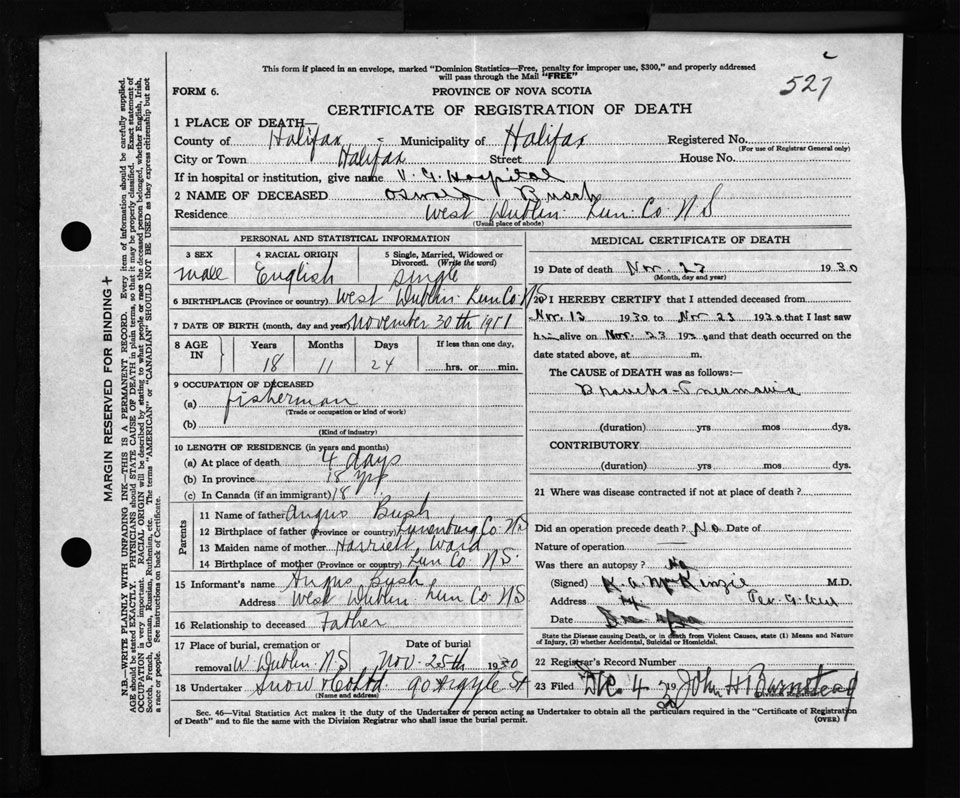 527
This form if placed in an envelope, marked "Dominion Statistics—Free, penalty for improper use, $300," and properly addressed
will pass through the Mail "FREE"
FORM 6.
PROVINCE OF NOVA SCOTIA
CERTIFICATE OF REGISTRATION OF DEATH
1 PLACE OF DEATH—
County of Halifax - Municipality of Halifax Registered No.
(For use of Registrar General only)
City or Town Halifax Street House No.
If in hospital or institution, give name V. G. Hospital
2 NAME OF DECEASED Oswald Bush
Residence West Dublin Lun. Co. N S
(Usual place of abode)
PERSONAL AND STATISTICAL INFORMATION
3 SEX 4 RACIAL ORIGIN 5 Single, Married, Widowed or
Divorced. (Write the word)
male English single
6 BIRTHPLACE (Province or country) West Dublin Lun Co. N S
7 DATE OF BIRTH (month, day and year) November 30th 1911
8 AGE IN Years Months Days If less than one day,
18 11 24 hrs. or min.
9 OCCUPATION OF DECEASED
(a) fisherman
(Trade or occupation or kind of work)
(b)
(Kind of industry)
10 LENGTH OF RESIDENCE (in years and months)
(a) At place of death 4 days
(b) In province 18 yrs
(c) In Canada (if an immigrant) 18
Parents
11 Name of father Angus Bush
12 Birthplace of father (Province or country) Lunenburg Co NS
13 Maiden name of mother Harriett Ward
14 Birthplace of mother Lun Co NS.
15 Informant's name Angus Bush
Address West Dublin Lun Co. N S
16 Relationship to deceased Father
17 Place of burial, cremation or Date of burial
removal W. Dublin. N S Nov. 25th 1930
18 Undertaker Snow & Co Ltd 90 Argyle St
(Name and address)
MEDICAL CERTIFICATE OF DEATH
19 Date of death Nov. 23 1930
(Month, day and year)
20 I HEREBY CERTIFY that I attended deceased from
Nov. 13 1930 to Nov 23 1930 that I last saw
him alive on Nov. 23 1930 and that death occurred on the
date stated above, at m.
The CAUSE of DEATH was as follows:—
Broncho-Pneumonia
(duration) yrs mos dys.
CONTRIBUTORY
(duration) yrs mos dys.
21 Where was disease contracted if not at place of death?
Did an operation precede death? No Date of
Nature of operation
Was there an autopsy? No
(Signed) K. A. McKenzie M.D.
Address
Date
State the Disease causing Death, or in death from Violent Causes, state (1) Means and Nature
of Injury, (2) whether Accidental, Suicidal or Homicidal.
22 Registrar's Record Number
23 Filed Dec. 4 John H Barnstead
Sec. 46—Vital Statistics Act makes it the duty of the Undertaker or person acting as Undertaker to obtain all the particulars required in the "Certificate of Registration
of Death" and to file the same with the Division Registrar who shall issue the burial permit.
(OVER)
MARGIN RESERVED FOR BINDING
N.B.—WRITE PLAINLY WITH UNFADING INK—THIS IS A PERMANENT RECORD. Every item of information should be carefully supplied.
AGE should be stated EXACTLY. PHYSICIANS should STATE CAUSE OF DEATH in plain terms, so that it may be properly classified. Exact statement of
OCCUPATION is very important. RACIAL ORIGIN will be described by stating to what people or race the deceased person belonged, whether English, Irish,
Scotch, French, German, Russian, Ruthenian, etc. The terms "AMERICAN" or "CANADIAN" SHOULD NOT BE USED as they express citizenship but not
a race or people. See instructions on back of Certificate.